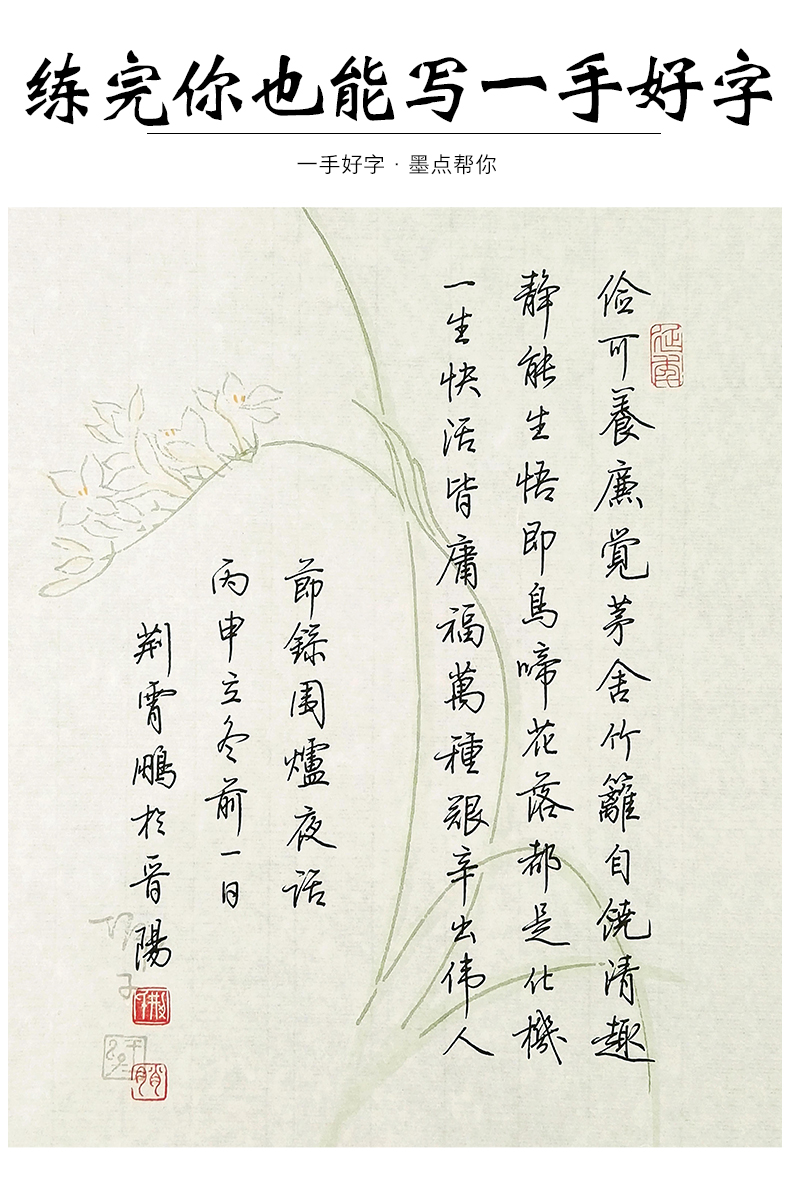 练完你也能写一手好字
一手好字 · 墨点帮你
俭可養廉觉茅舍竹籬自饒清趣
静能生悟即鳥啼花落都是化機
一生快活皆庸福萬種艰辛出伟人
節錄围爐夜话
丙申立冬前一日
荆霄鵬於晉陽